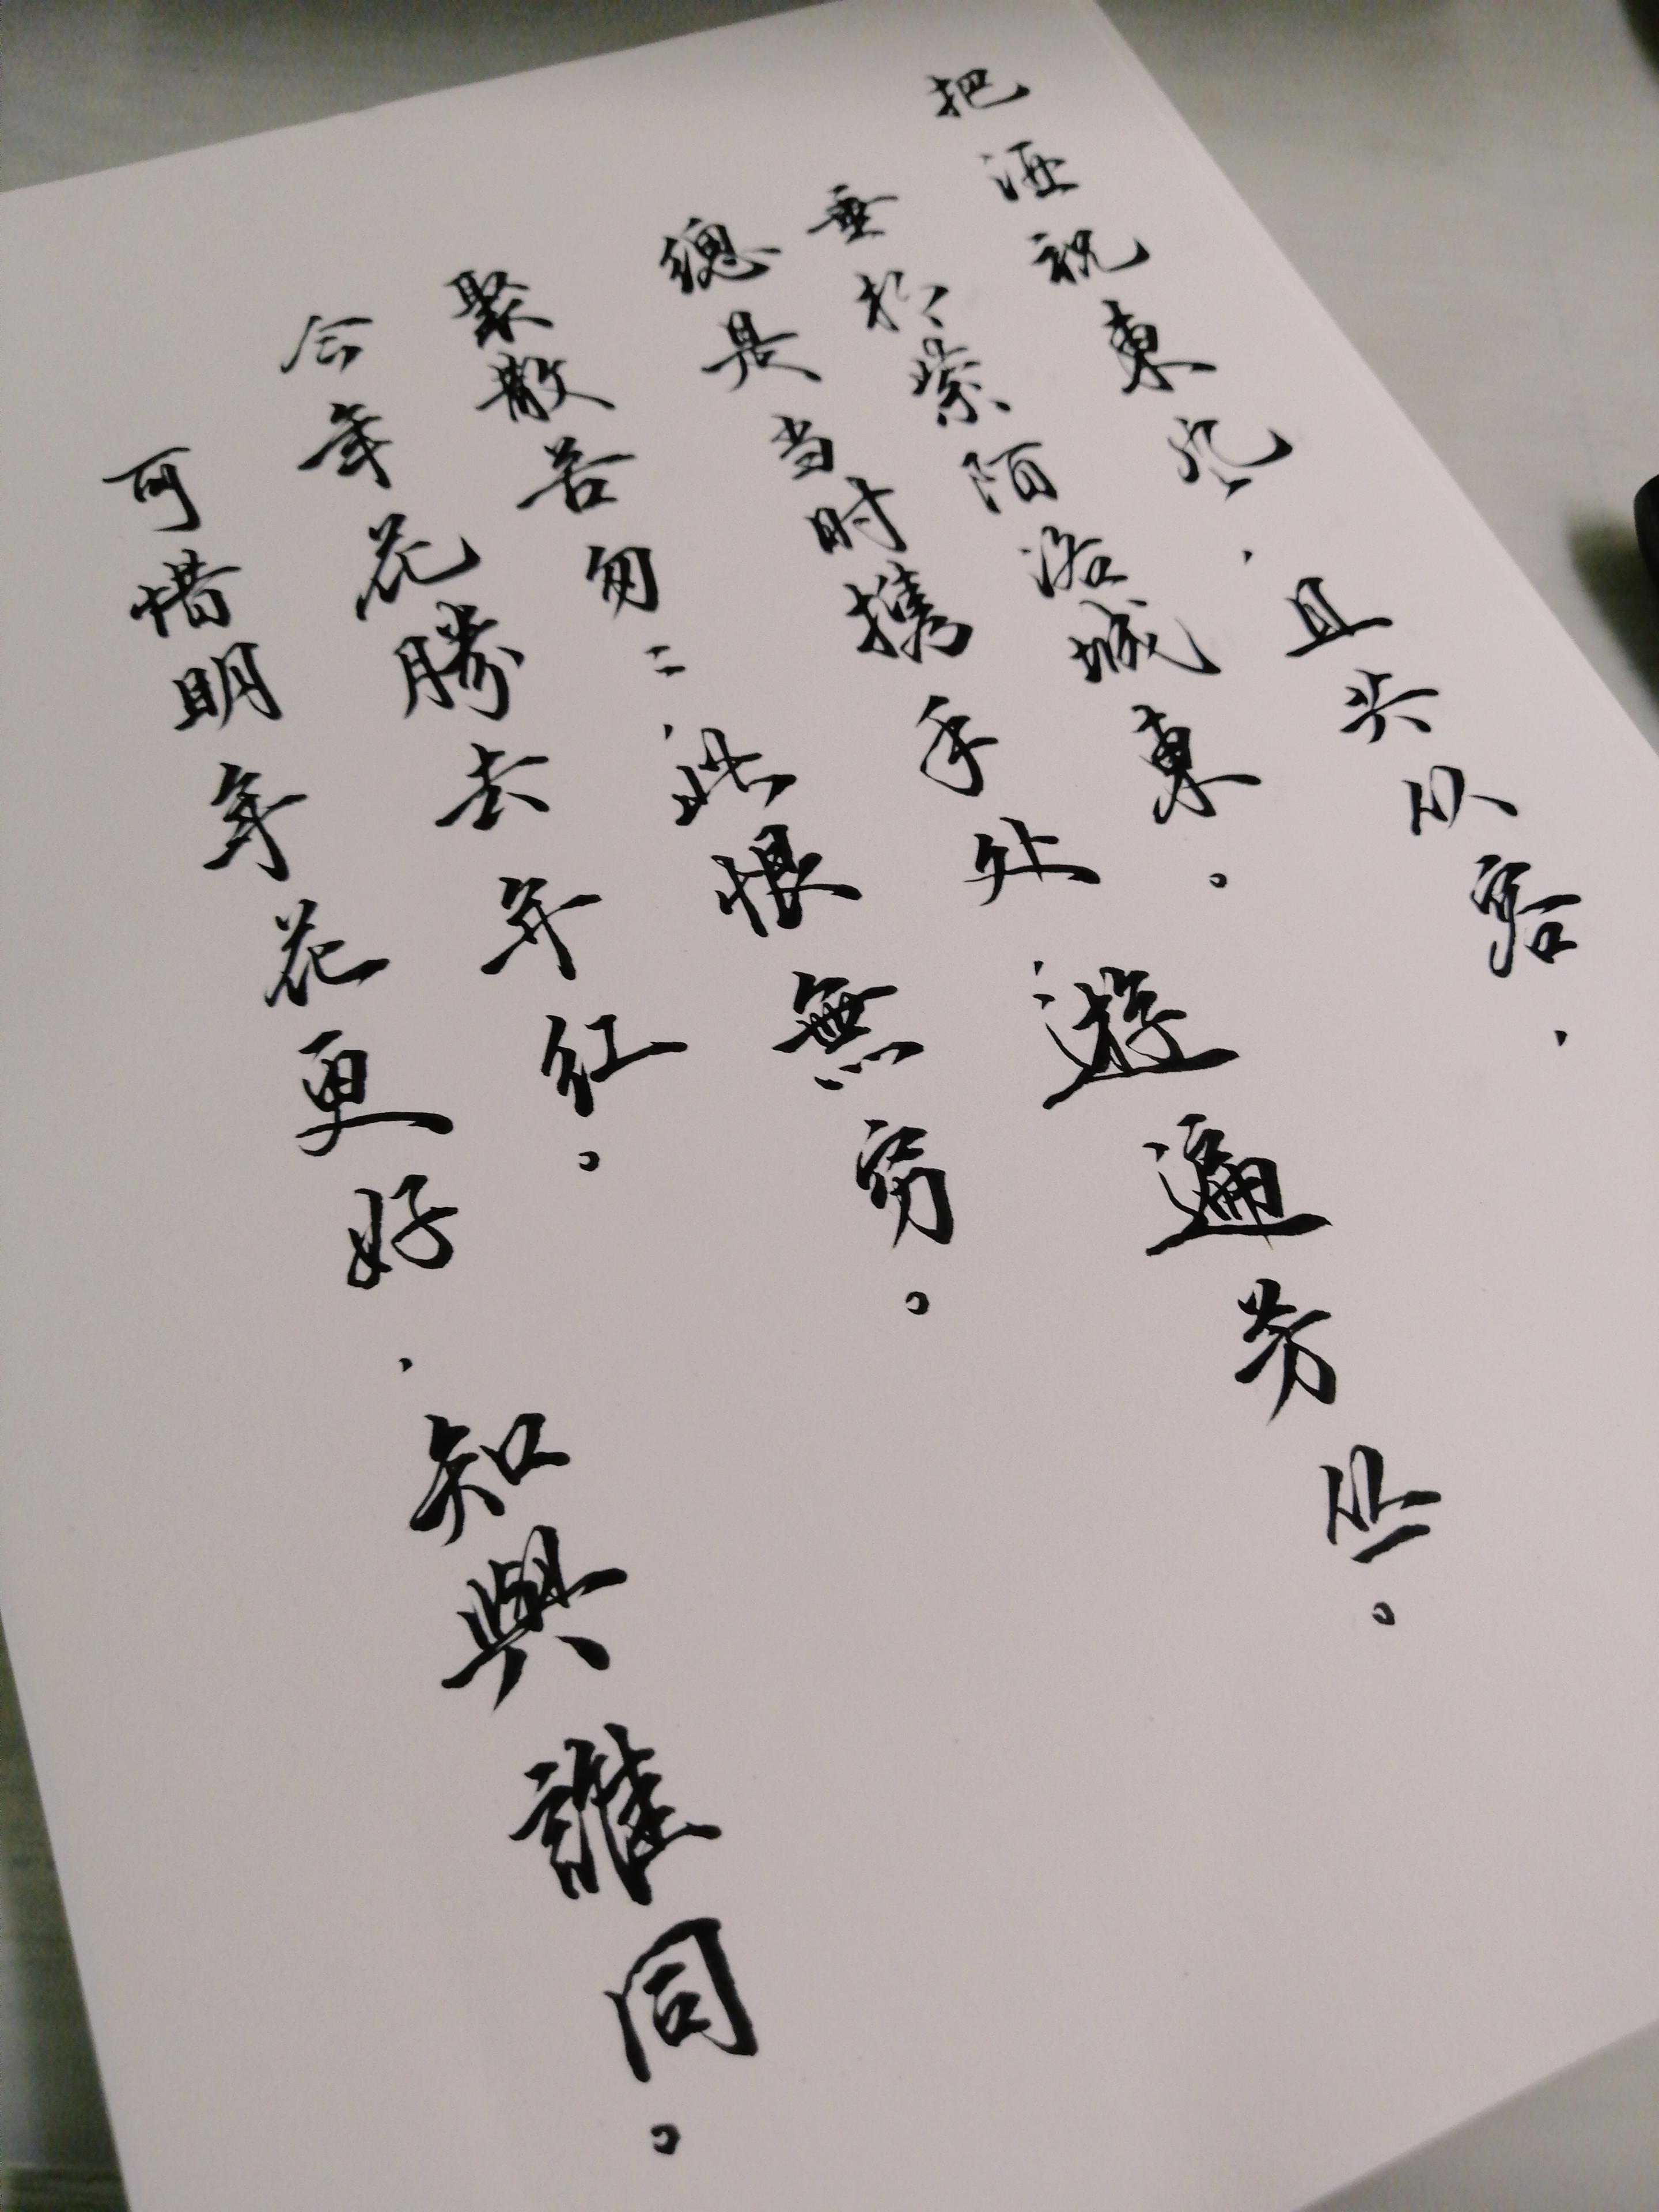 把酒祝東风，且共从容，
垂杨紫陌洛城東。
總是当时携手处，遊遍芳丛。
聚散苦匆〻，此恨無穷。
今年花勝去年红。
可惜明年花更好，知與誰同。